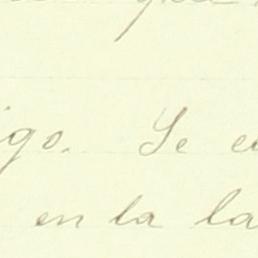 igo. Se e
en la la